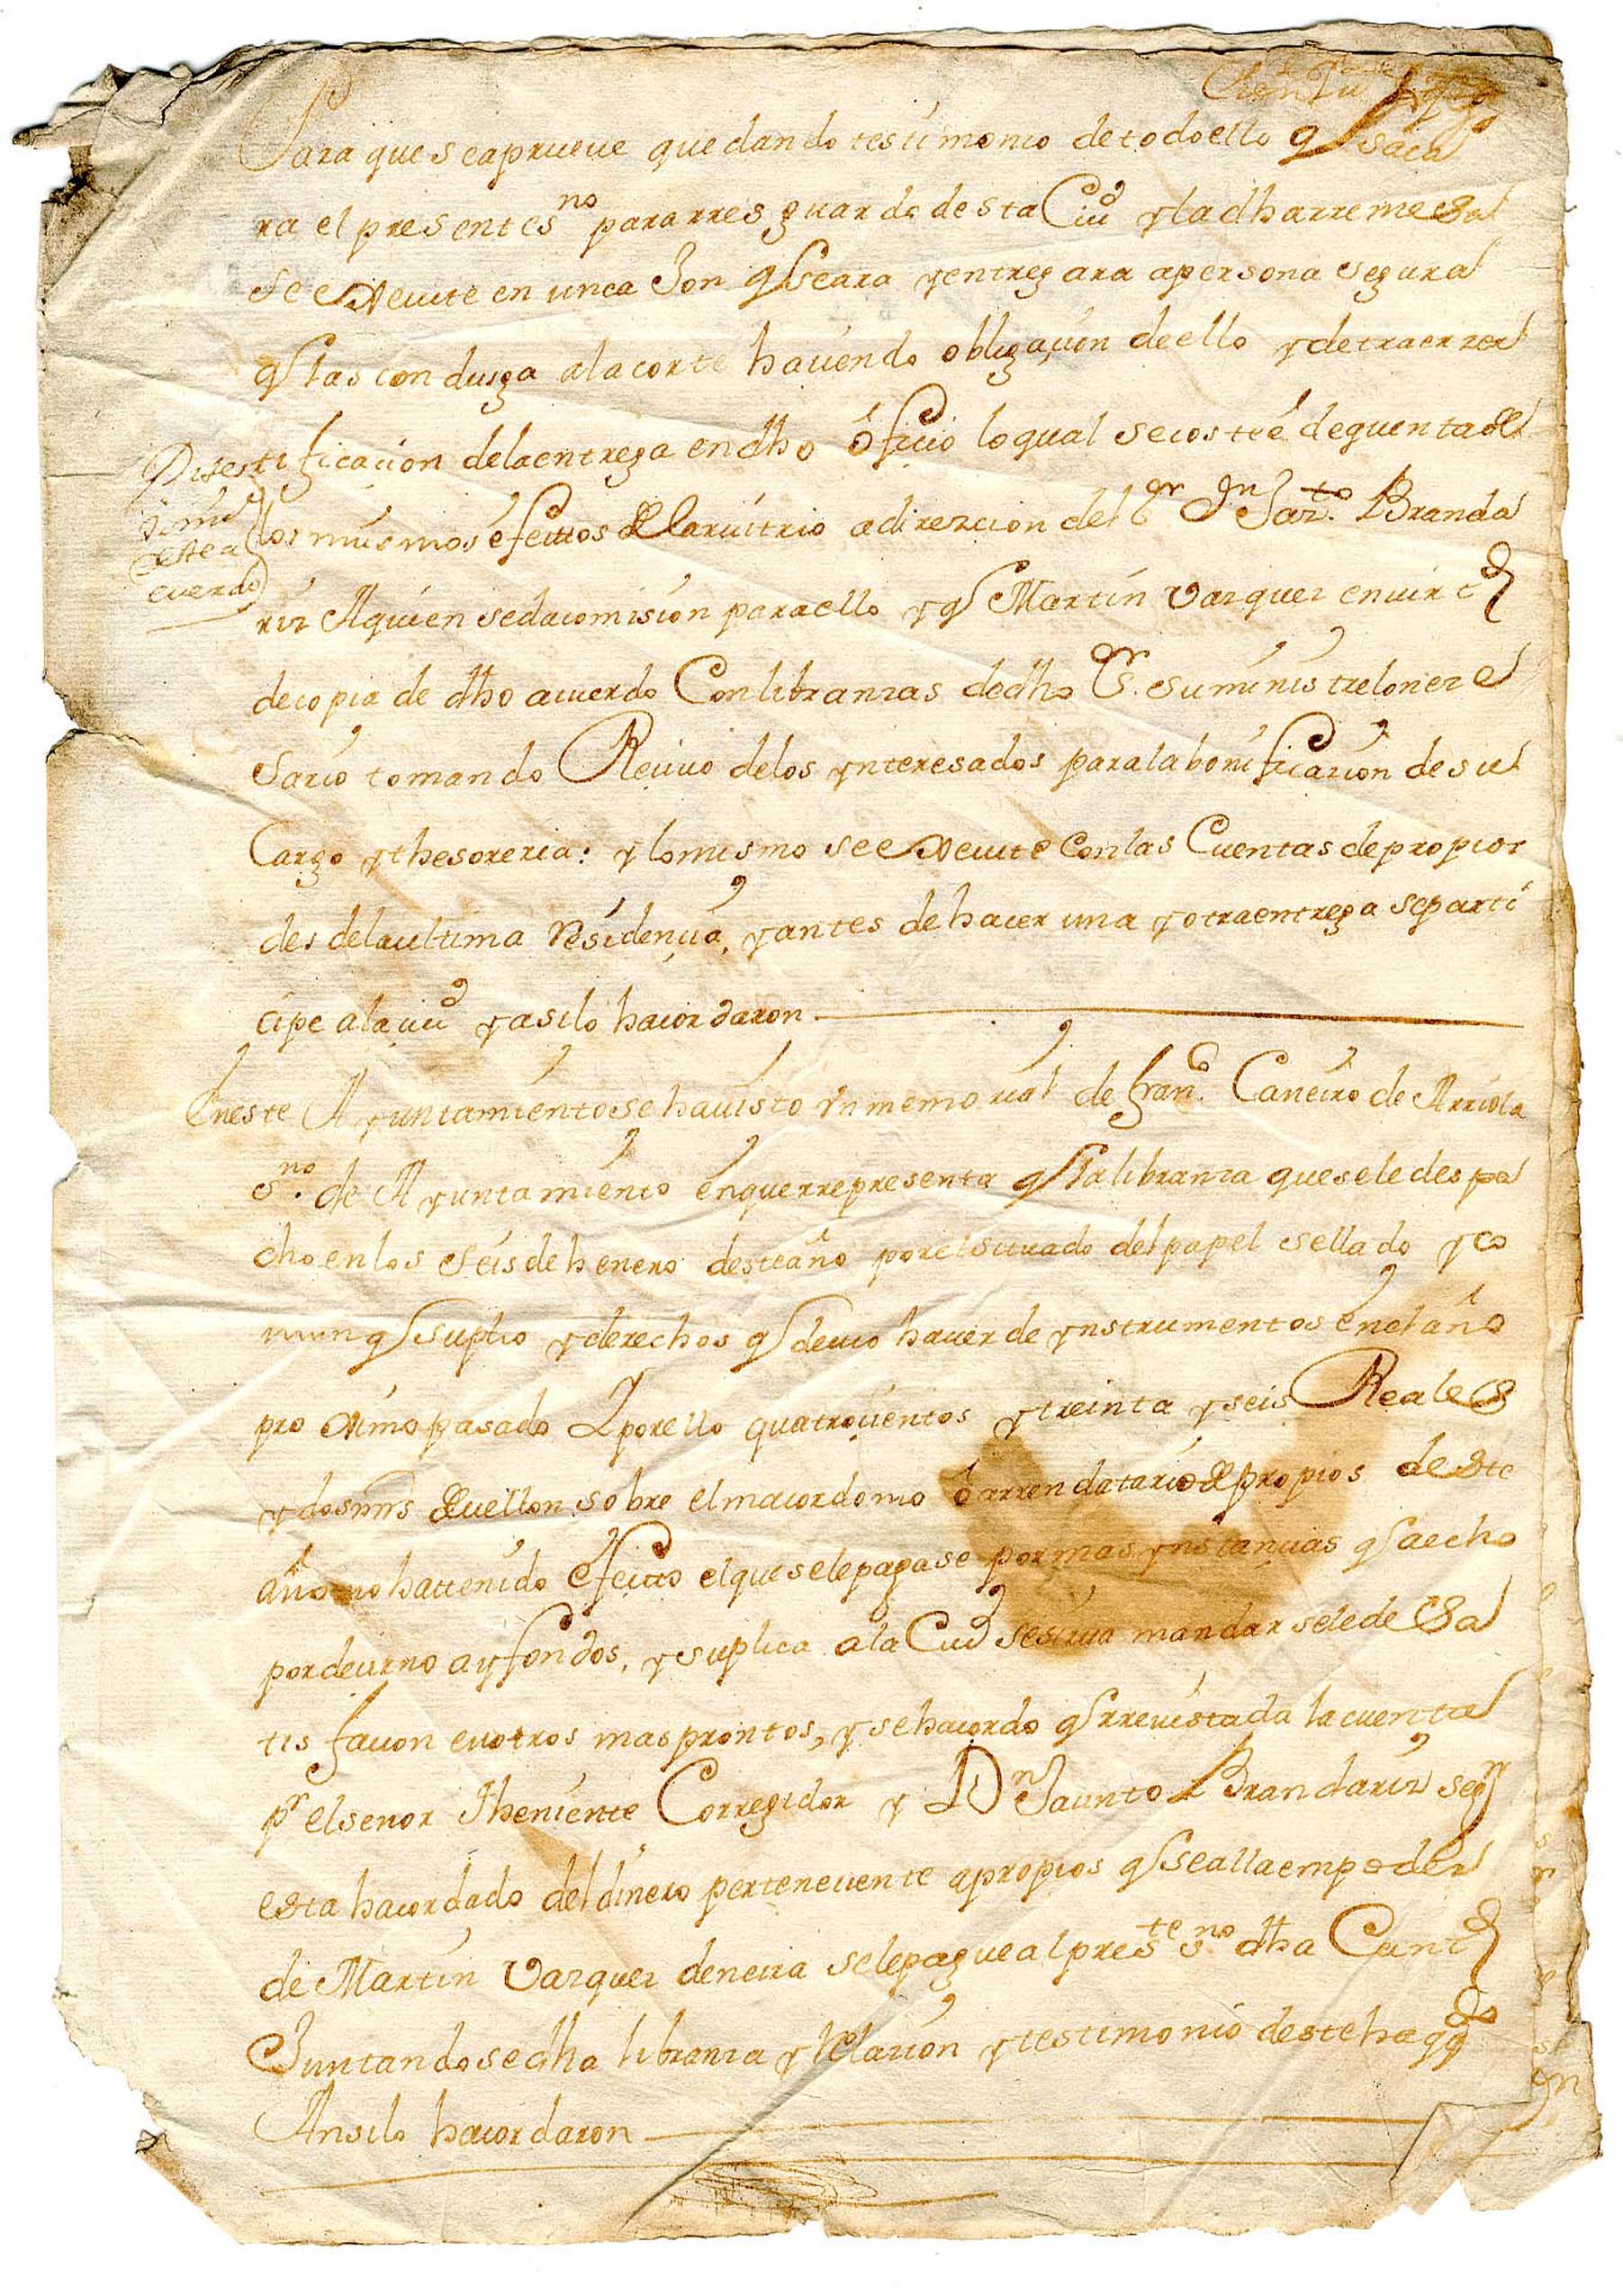 Para que seaprueue quedando testimonio detodoello q saca
ra el presentes.no pararresguardo desta Ciud yladharremesa
se execute en unca Jon q seara yentregara apersona segura
q las condusga alacorte haciendo obligacion deello ydetraerzer
tificacion delaentrega endho oficio loqual secostee dequentade
Disetti
timo
destea
cuerdo
los mismos efectos delaruitrio adirezcion del Sr Dn Jazto Branda
riz Aquien sedacomision paraello yq Martin Vazquez envirtd
decopia de dho acuerdo Conlibranzas dedho Sr. suministreloneze
sario tomando Reciuo delos ynteresados paralabonificazion desu
Cargo ythesoreria: ylomismo seexecute Conlas Cuentas depropios
des delaultima residencia, yantes dehacer una yotraentrega separti
cipe alaciud yasilo hacordaron.
Eneste Ayuntamientosehauisto Vnmemorial de Franco. Caneiro de Arriola
sno. de Ayuntamiento enquerrepresenta q lalibranza queselédespa
cho enlos seis de henero desteaño porelsituado delpapel sellado yco
mun q suplio yderechos q deuio hauerde ynstrumentos enelaño
proximopasado Yporello quatrocientos ytreinta yseis Reales
ydosmrs devellon sobre elmaiordomo o arrendatariodepropios deste
año nohatenido efecto elqueselepagase pormas ynstancias q aecho
pordecirno ayfondos, ysuplica ala Ciud sesirua mandar selede sa
tisfacion enotros masprontos, ysehacordo q rreuistada lacuenta
pr elsenor Theniente Corregidor y Dn Jacinto Brandariz segn
esta hacordado deldinero perteneciente apropios q seallaempoder
de Martin Vazquez deneira selepague alpreste sno dha Cantd
Juntandosedha libranza yrelazion ytestimonio destehaqdo
Ansilo hacordaron